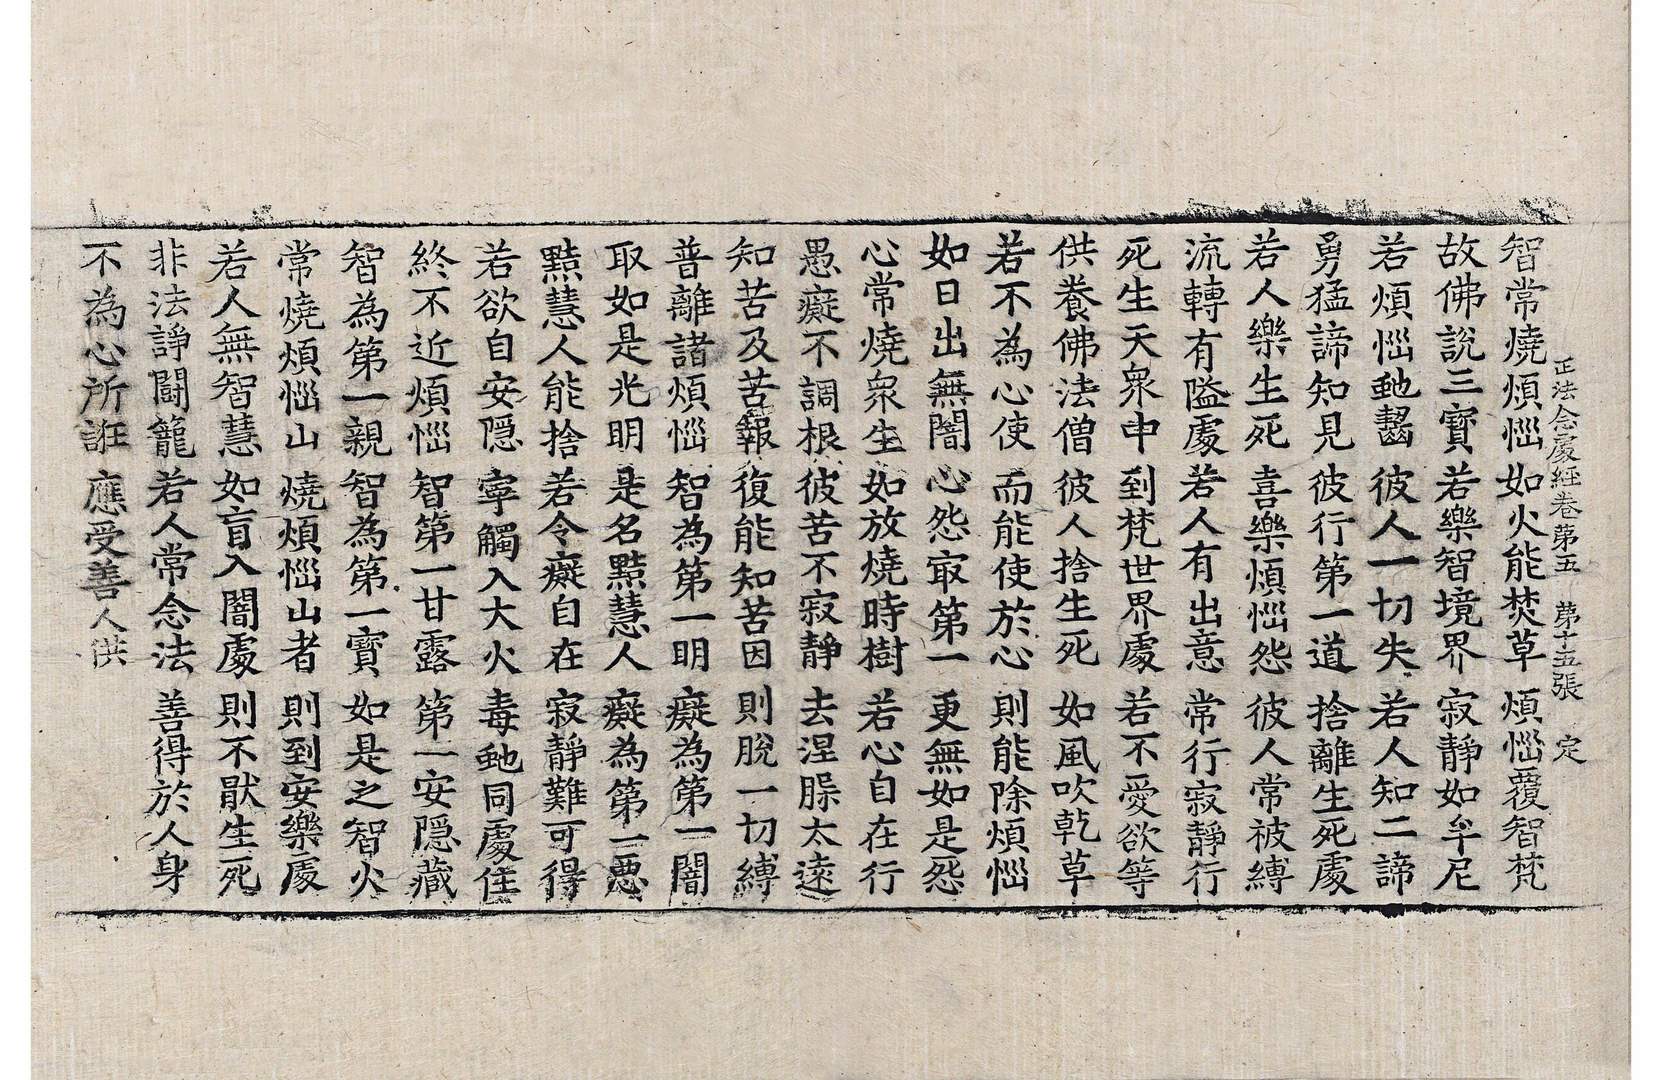 正法念處經卷第五　第十五張　定
智常燒煩惱如火能焚草　煩惱覆智梵
故佛說三寶若樂智境界　寂靜如牟尼
若煩惱虵齧彼人一切失　若人知二諦
勇猛諦知見彼行第一道　捨離生死處
若人樂生死喜樂煩惱怨　彼人常被縛
流轉有隘處若人有出意　常行寂靜行
死生天衆中到梵世界處　若不愛欲等
供養佛法僧彼人捨生死　如風吹乾草
若不為心使而能使於心　則能除煩惱
如日出無闇心怨㝡第一　更無如是怨
心常燒衆生如放燒時樹　若心自在行
愚癡不調根彼苦不寂靜　去涅槃太遠
知苦及苦報復能知苦因　則脫一切縛
普離諸煩惱智為第一明　癡為第一闇
取如是光明是名黠慧人　癡為第一惡
黠慧人能捨若令癡自在　寂靜難可得
若欲自安隱寧觸入大火　毒虵同處住
終不近煩惱智第一甘露　第一安隱藏
智為第一親智為第一寶　如是之智火
常燒煩惱山燒煩惱山者　則到安樂處
若人無智慧如盲入闇處　則不猒生死
非法諍鬪籠若人常念法　善得於人身
不為心所誑應受善人供